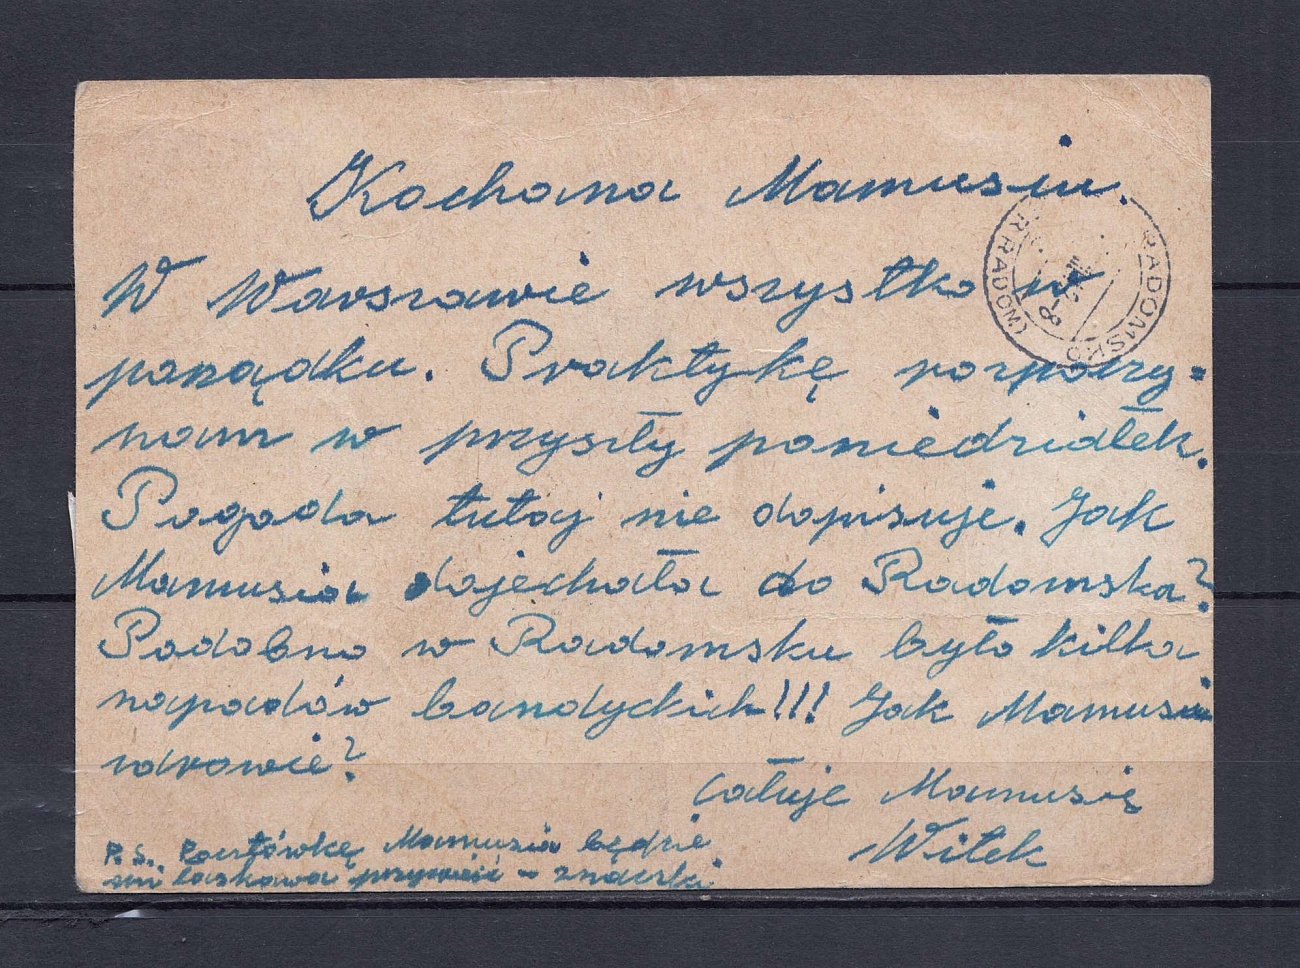 Kochana Mamusiu.
W Warszawie wszystko w
porządku. Praktykę rozpoczy-
nam w przyszły poniedziałek.
Pogoda tutaj nie dopisuje. Jak
Mamusia dojechała do Radomska?
Podobno w Radomsku było kilka
napadów bandyckich!!! Jak Mamusi
zdrowie?
Całuje Mamusię
Witek
P.S. Pocztówkę Mamusia będzie
mi łaskawa przywieść - znaczki
RADOMSKO